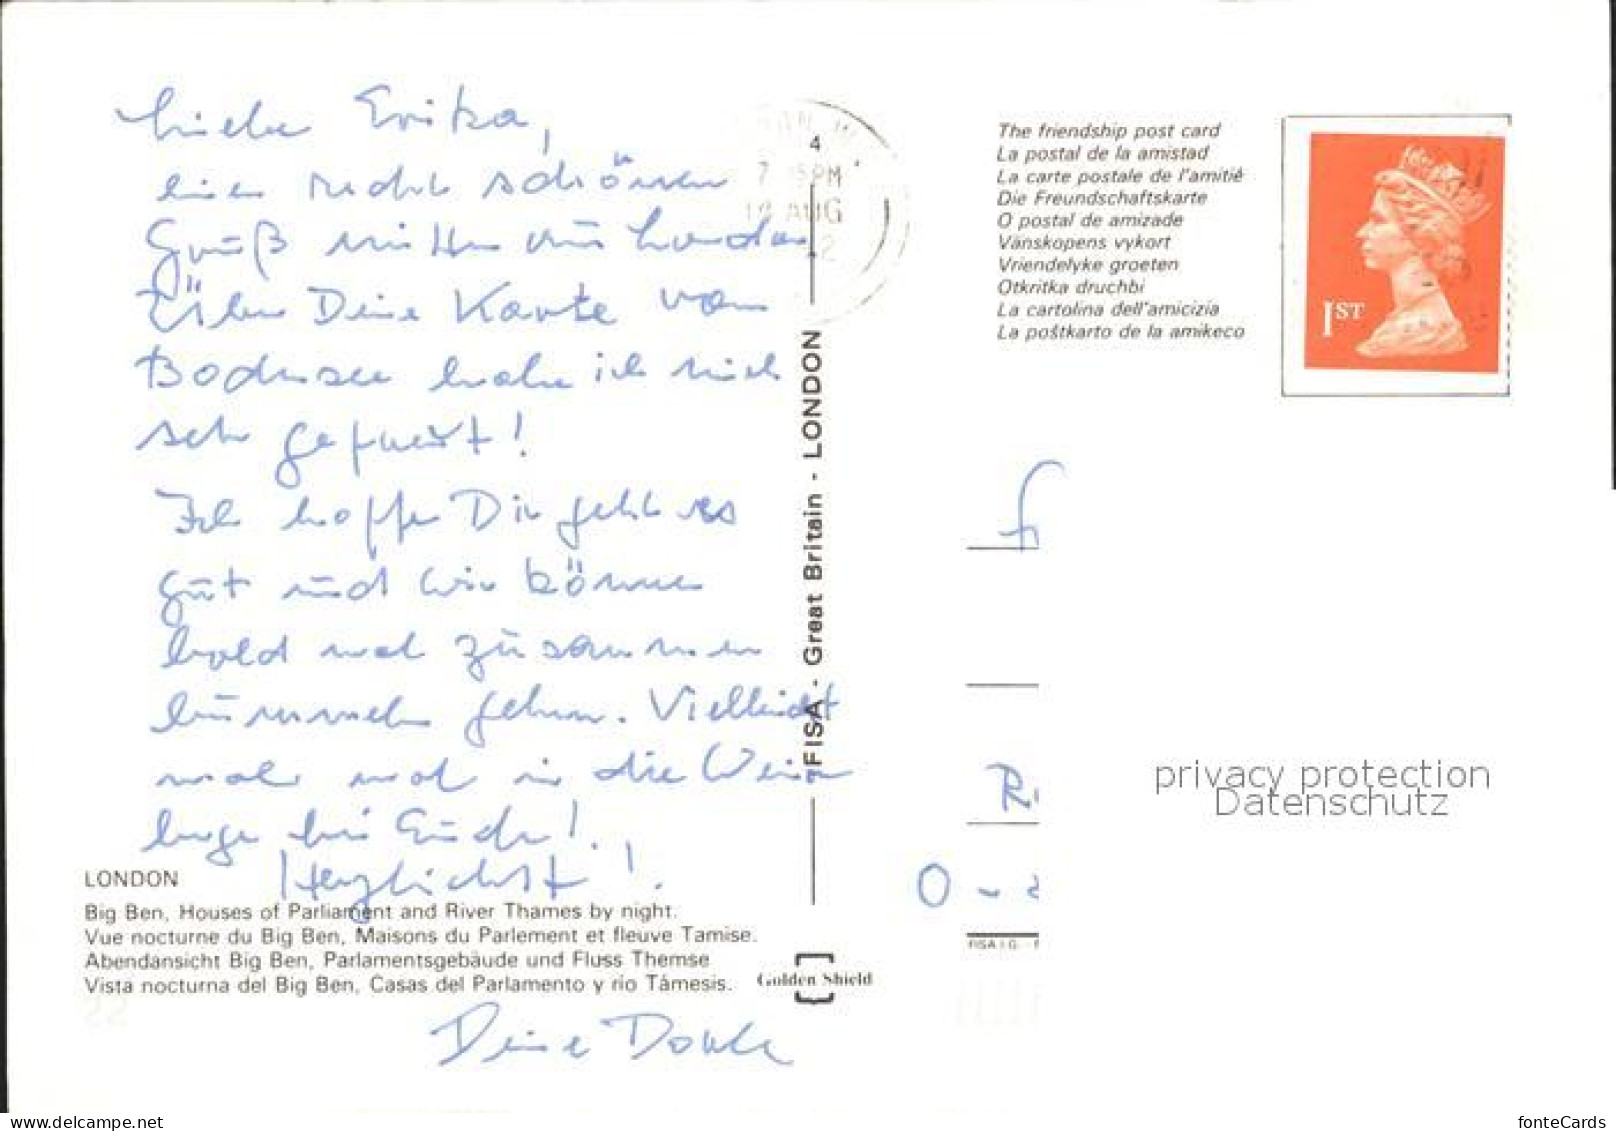 Liebe Erika,
einen recht schönen
Gruß mitten aus London
Über Deine Karte vom
Bodensee habe ich mich
sehr gefreut!
Ich hoffe Dir geht es
gut und wir können
bald mal zusammen
bummeln gehen. Vielleicht
mal in die
bei Euch!
Herzlichst!
LONDON
Big Ben, Houses of Parliament and River Thames by night.
Vue nocturne du Big Ben, Maisons du Parlement et fleuve Tamise.
Abendansicht Big Ben, Parlamentsgebäude und Fluss Themse
Vista nocturna del Big Ben, Casas del Parlamento y rio Támesis.
Deine
FISA - Great Britain - LONDON
Golden Shield
4
PM
AUG
The friendship post card
La postal de la amistad
La carte postale de l'amitié
Die Freundschaftskarte
O postal de amizade
Vänskopens vykort
Vriendelyke groeten
Otkritka druchbi
La cartolina dell'amicizia
La poŝtkarto de la amikeco
1ST
privacy protection
Datenschutz
O -
FISA I.G. -
www.delcampe.net
fonteCards